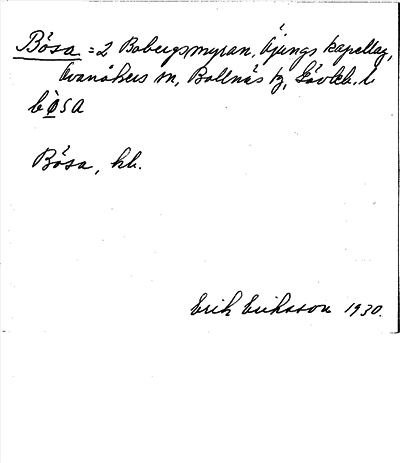 Bösa = 2 Bobergsmyran, Öjungs kapellag,
Ovanåkers sn, Bollnäs tg, Gävleb. l
bøsa
Bösa, hb.
Erik Eriksson 1930.